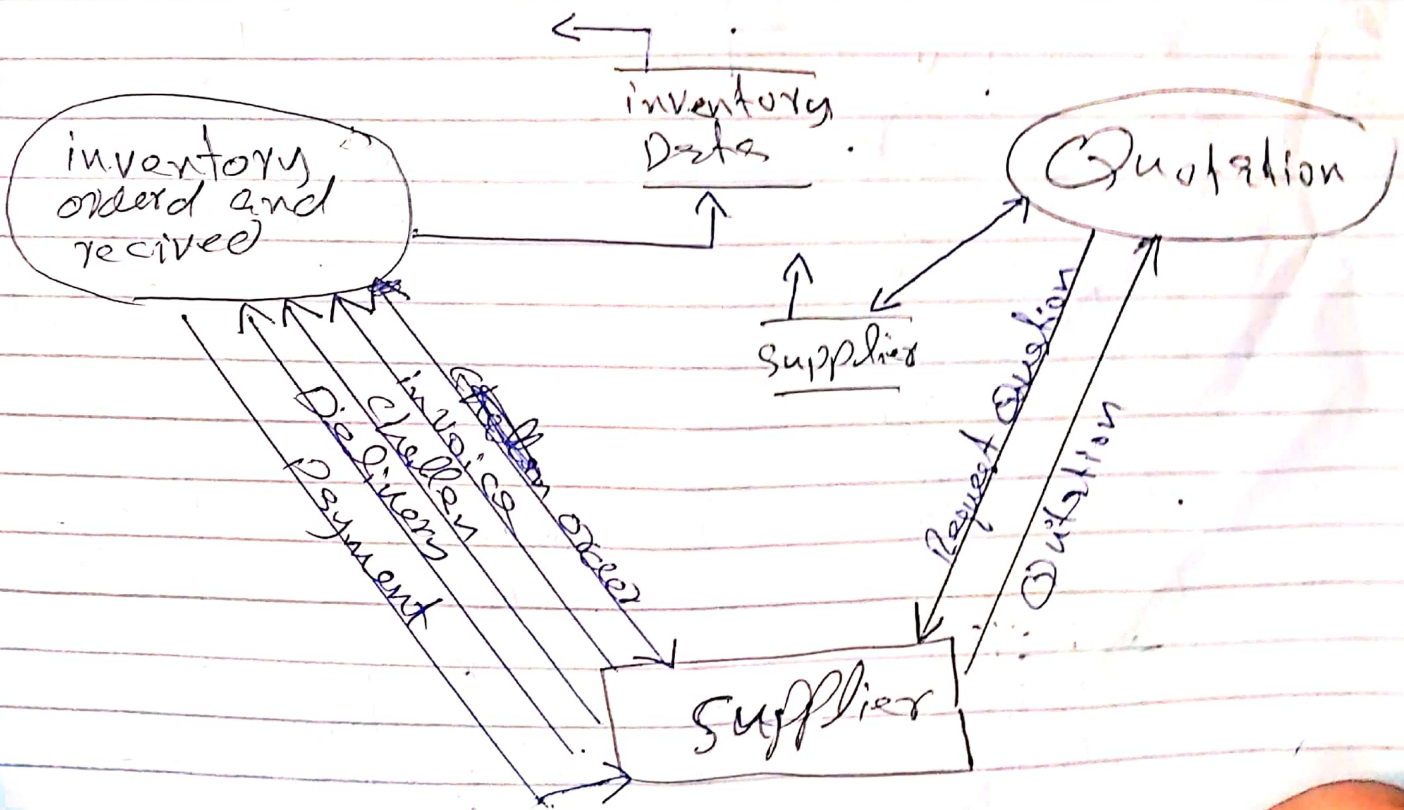 inventory
Data
inventory
orderd and
recived
Quotation
supplier
Request Quation
Quitation
order
invoice
challen
Delivery
Payment
Supplier